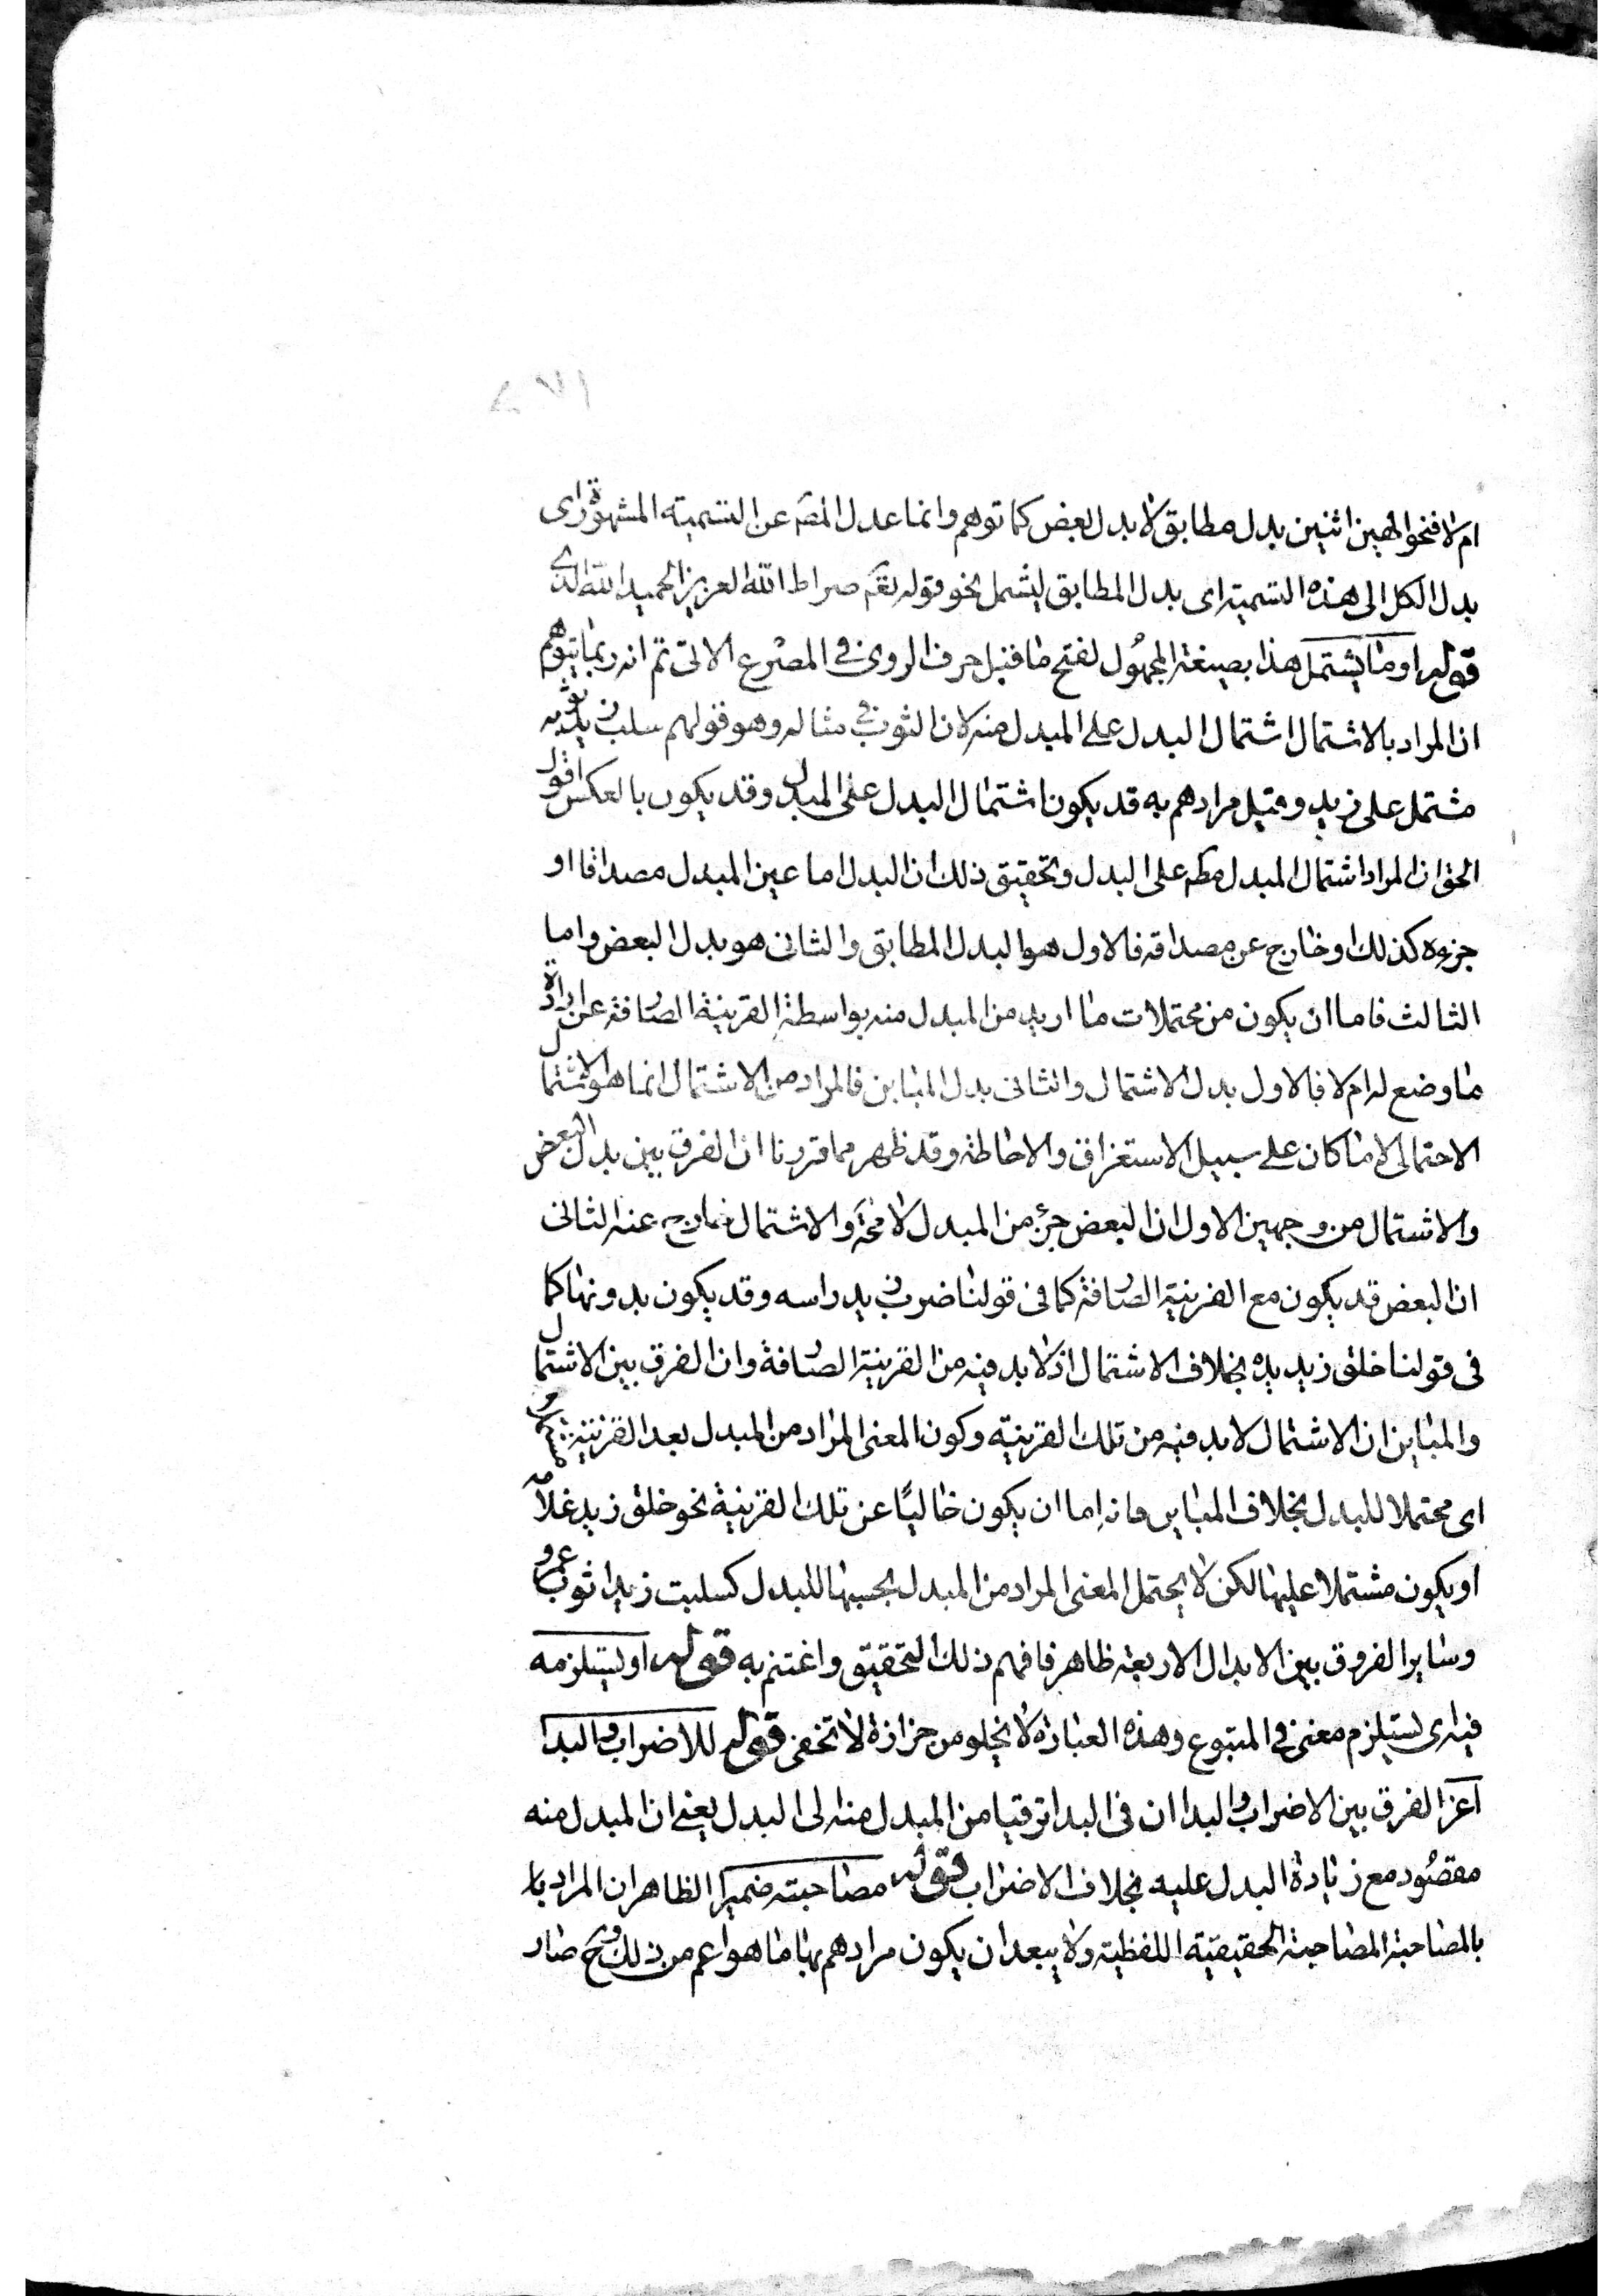 ام لا فنحو الهين اثنين بدل مطابق لا بدل بعض كما توهم وانما عدل المصَ عن التسمية المشهورة اى
بدل الكل الى هذه التسمية اى بدل المطابق ليشمل نحو قوله تعَم صراط الله العزيز الحميد الله الذى
قوله او ما يشتمل هذا بصيغة المجهول لفتح ما قبل حرف الروى فى المصرع الاتى ثم انه ربما يتوهم
ان المراد بالاشتمال اشتمال البدل على المبدل منه لان الثوب فى مثاله وهو قولهم سلب زيد ثوبه
مشتمل على زيد وقيل مرادهم به قد يكون اشتمال البدل على المبدل وقد يكون بالعكس اقول
الحق ان المراد اشتمال المبدل مطَ على البدل وتحقيق ذلك ان البدل اما عين المبدل مصداقا او
جزءه كذلك او خارج عن مصداقه فالاول هو البدل المطابق والثانى هو بدل البعض واما
الثالث فاما ان يكون من محتملات ما اريد من المبدل منه بواسطة القرينة الصارفة عن ارادة
ما وضع له ام لا فالاول بدل الاشتمال والثانى بدل المباين فالمراد من الاشتمال انما هو الاشتمال
الاحتمالى لا ما كان على سبيل الاستغراق والاحاطة وقد ظهر مما قررنا ان الفرق بين بدل البعض
والاشتمال من وجهين الاول ان البعض جزء من المبدل لا محَة والاشتمال خارج عنه الثانى
ان البعض قد يكون مع القرينة الصارفة كما فى قولنا ضرب زيد راسه وقد يكون بدونها كما
فى قولنا خلق زيد يده بخلاف الاشتمال اذ لا بد فيه من القرينة الصارفة وان الفرق بين الاشتمال
والمباين ان الاشتمال لا بد فيه من تلك القرينة وكون المعنى المراد من المبدل بعد القرينة
اى محتملا للبدل بخلاف المباين فانه اما ان يكون خاليًا عن تلك القرينة نحو خلق زيد غلامه
او يكون مشتملا عليها لكن لا يحتمل المعنى المراد من المبدل بحسبها للبدل كسلبت زيدا ثوب عمرو
وساير الفروق بين الابدال الاربعة ظاهر فافهم ذلك التحقيق واغتنم به قوله او يستلزمه
فيه اى يستلزم معنى فى المتبوع وهذه العبارة لا يخلو من حزازة لا تخفى قوله للاضراب والبدا
اعز الفرق بين الاضراب والبدا ان فى البدا ترقيا من المبدل منه الى البدل يعنى ان المبدل منه
مقصود مع زيادة البدل عليه بخلاف الاضراب قوله مصاحبته ضميرا الظاهر ان المراد با
بالمصاحبة المصاحبة الحقيقية اللفظية ولا يبعد ان يكون مرادهم بها ما هو اعم من ذلك وح صار